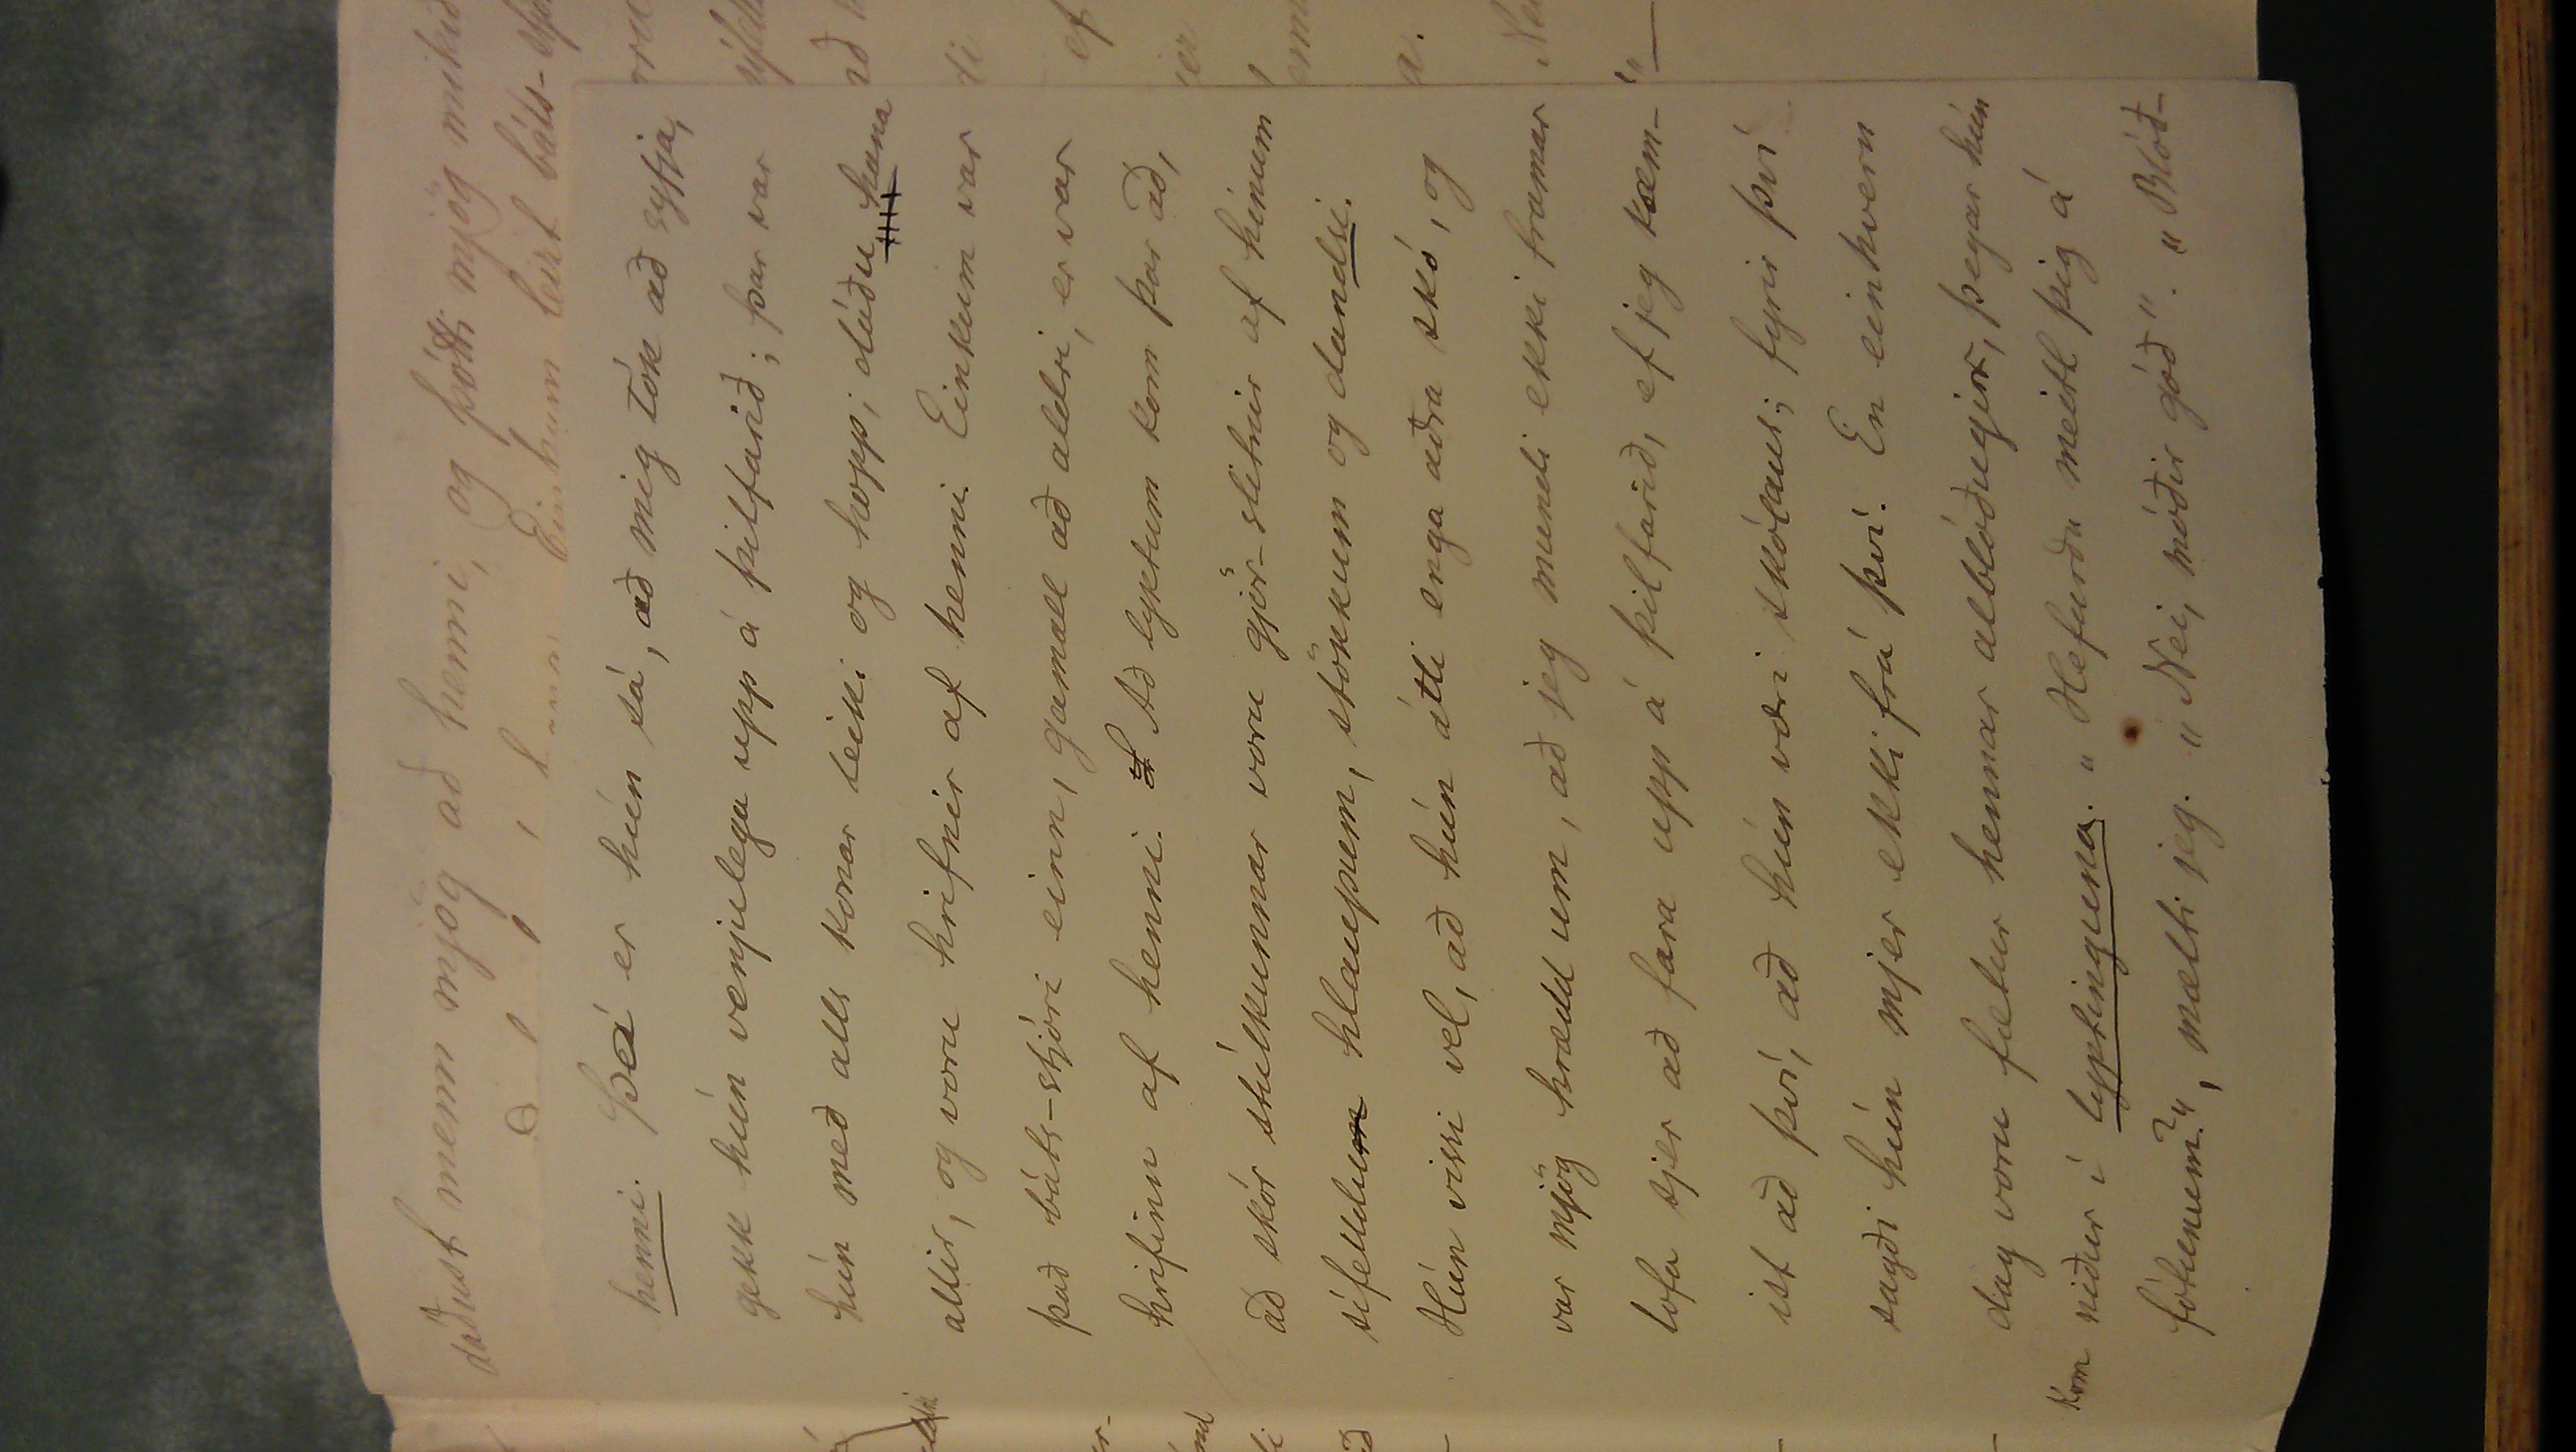 dáðust menn mjög að henni, og þótti mjög mikið
Einkum leizt báts-
henni. Þá er hún sá, að mig tók að syfja,
gekk hún venjulega upp á þilfarið; þar var
hún með alls konar leiki og hopp; dáðu hana
allir, og voru hrifnir af henni. Einkum var
það báts-stjóri einn, gamall að aldri, er var
hrifinn af henni. Að lyktum kom þar að,
að skór stúlkunnar voru gjör-slitnir af hinum
sífelldu hlaupum, stökkum og dansi.
Hún vissi vel, að hún átti enga aðra skó, og
var mjög hrædd um, að jeg mundi ekki framar
lofa sjer að fara upp á þilfarið, ef jeg kæm-
ist að því, að hún væri skólaus; fyrir því
sagði hún mjer ekki frá því. En einhvern
dag voru fætur hennar alblóðugir, þegar hún
kom niður í lyptinguna. „Hefurðu meitt þig á
fótunum?", mælti jeg. „Nei, móðir góð". „Blóð-